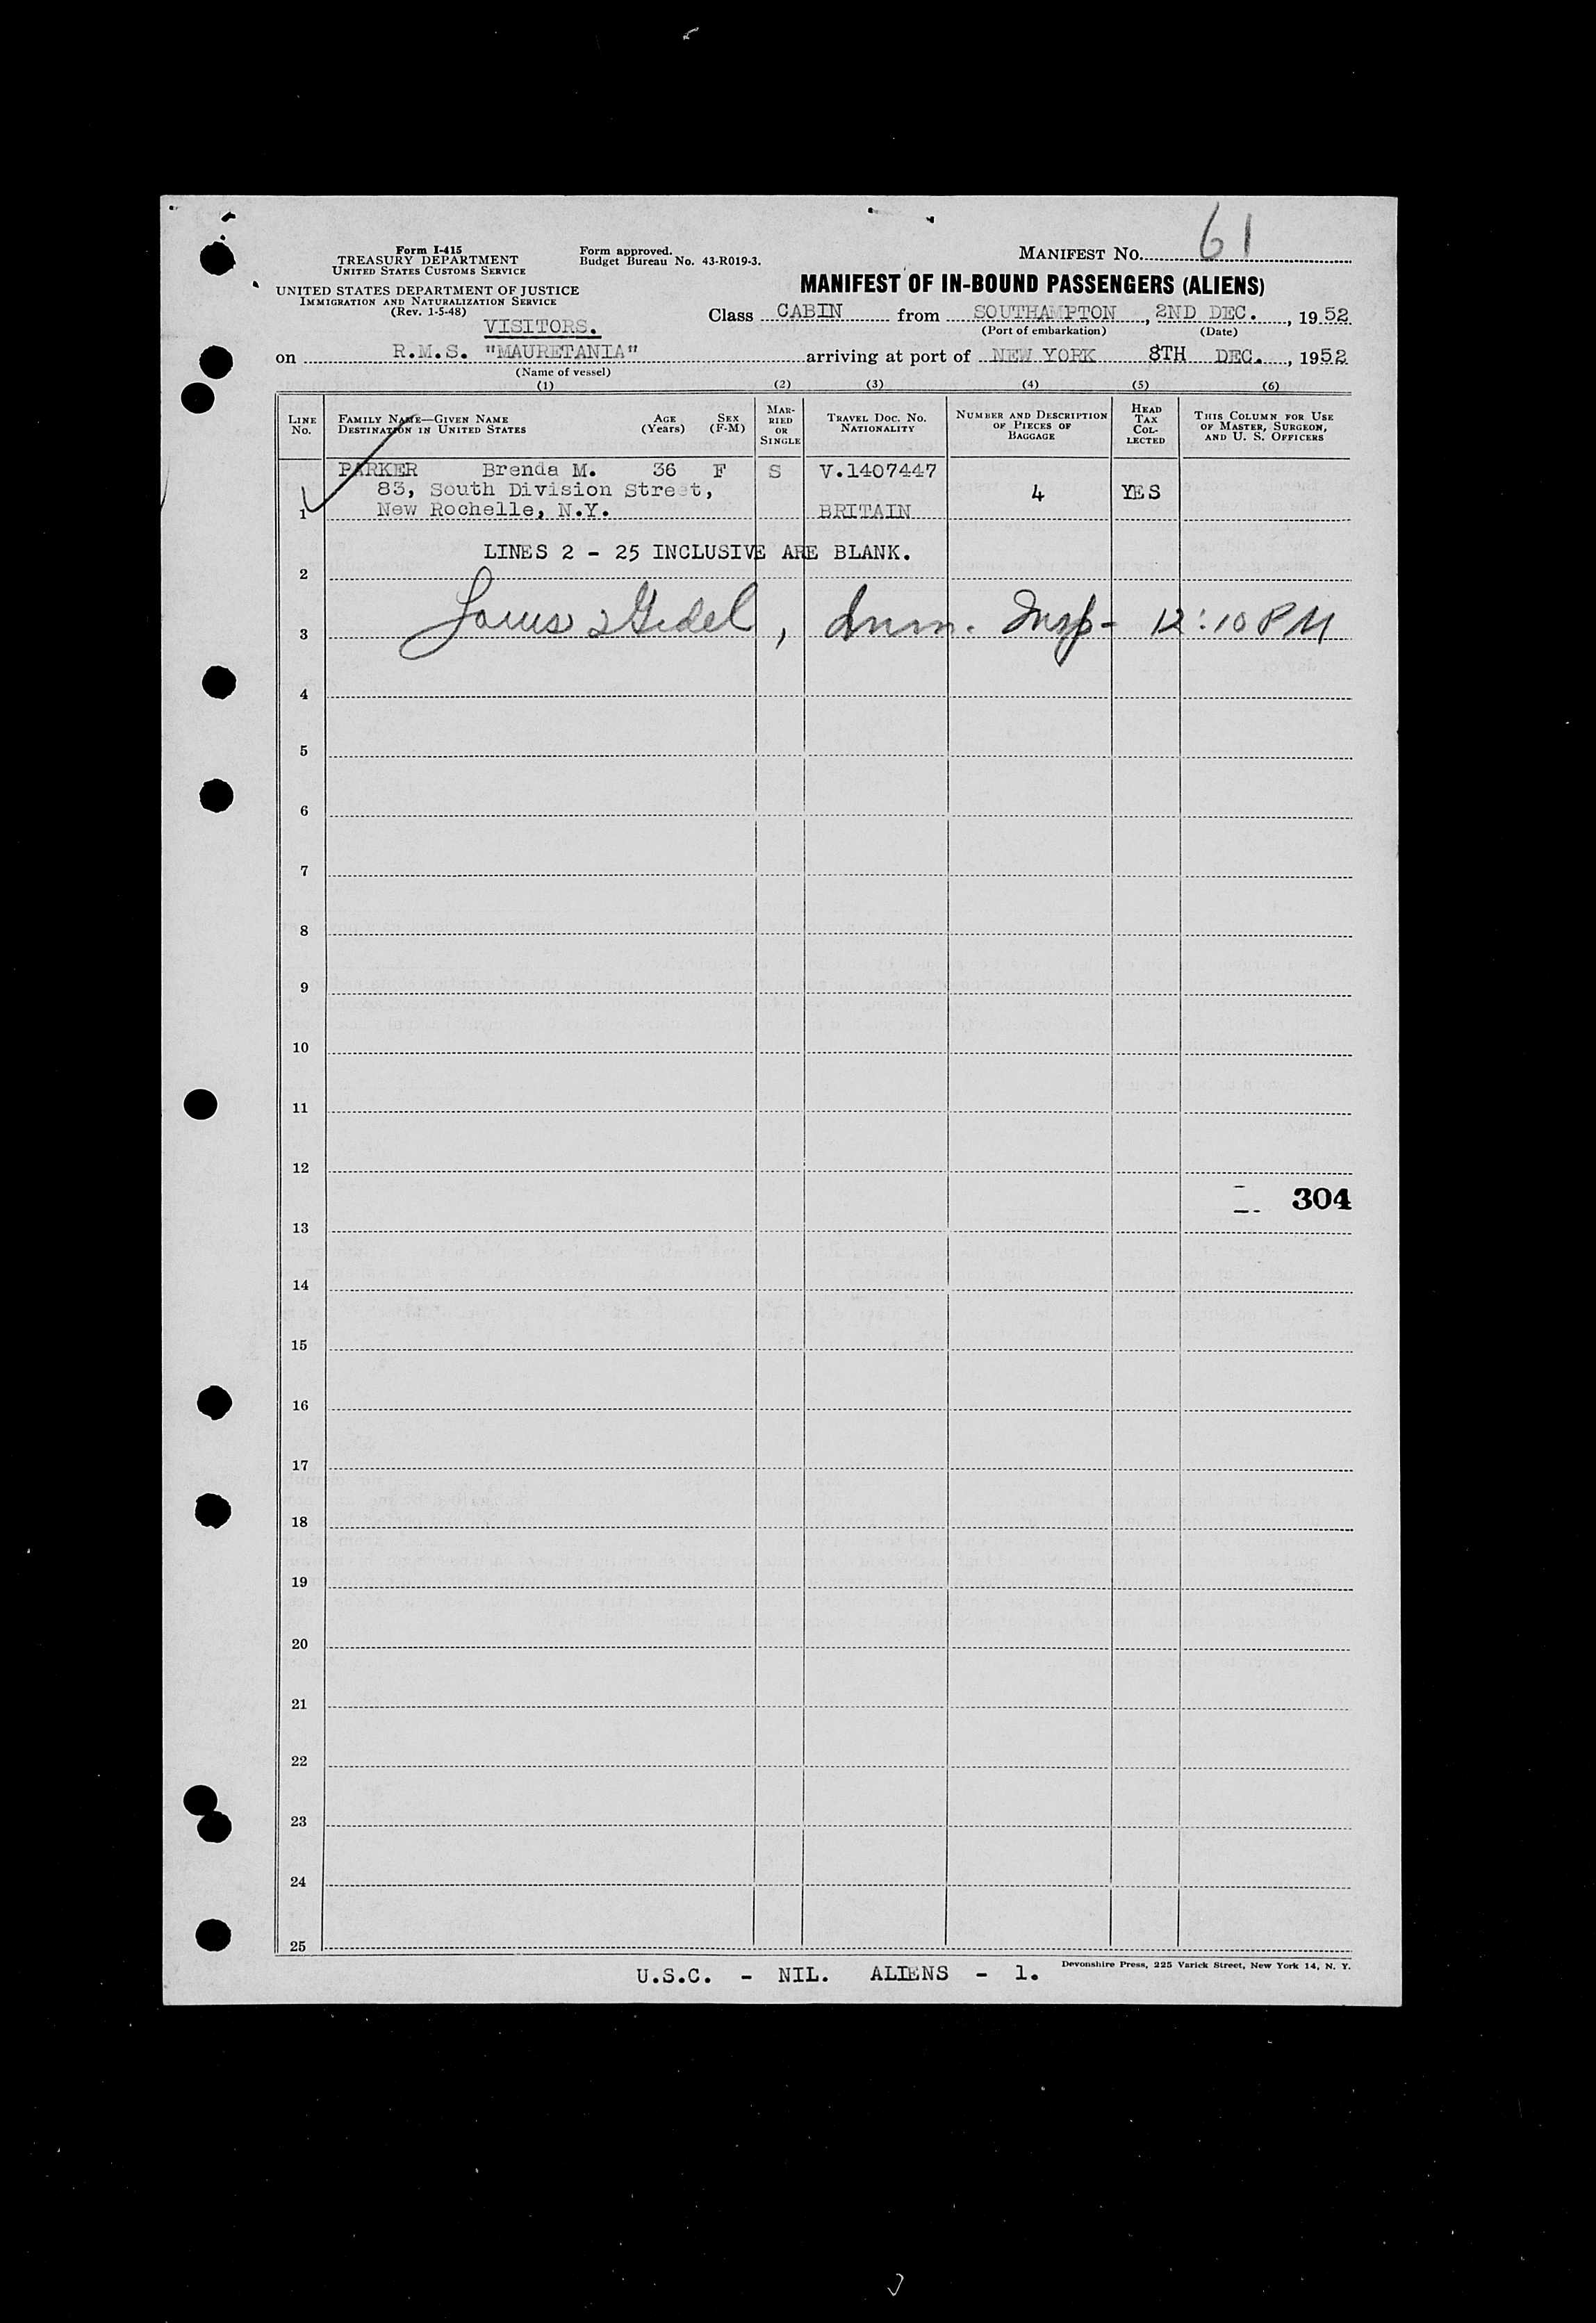 MANIFEST NO. 61
Form I-415
TREASURY DEPARTMENT
UNITED STATES CUSTOMS SERVICE
Form approved.
Budget Bureau No. 43-R019-3.
UNITED STATES DEPARTMENT OF JUSTICE
IMMIGRATION AND NATURALIZATION SERVICE
(Rev. 1-5-48)
MANIFEST OF IN-BOUND PASSENGERS (ALIENS)
VISITORS.
Class CABIN from SOUTHAMPTON, 2ND DEC., 1952
(Port of embarkation) (Date)
on R.M.S. "MAURETANIA" arriving at port of NEW YORK 8TH DEC., 1952
(Name of vessel)
(1) (2) (3) (4) (5) (6)
LINE No.
FAMILY NAME—GIVEN NAME
DESTINATION IN UNITED STATES
AGE (Years)
SEX (F-M)
MARRIED OR SINGLE
TRAVEL DOC. NO.
NATIONALITY
NUMBER AND DESCRIPTION OF PIECES OF BAGGAGE
HEAD TAX COLLECTED
THIS COLUMN FOR USE OF MASTER, SURGEON, AND U. S. OFFICERS
PARKER Brenda M. 36 F S V.1407447
83, South Division Street, 4 YES
1 New Rochelle, N.Y. BRITAIN
LINES 2 - 25 INCLUSIVE ARE BLANK.
2
3 Louis Gedel, Imm. Insp- 12:10 PM
4
5
6
7
8
9
10
11
12
304
13
14
15
16
17
18
19
20
21
22
23
24
25
U.S.C. - NIL. ALIENS - 1.
Devonshire Press, 225 Varick Street, New York 14, N. Y.